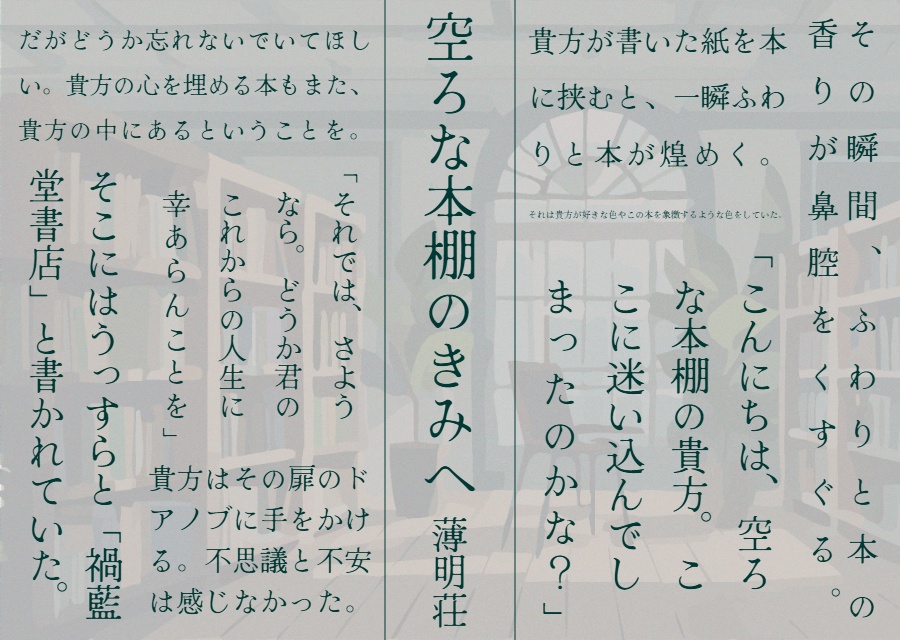 その瞬間、ふわりと本の
香りが鼻腔をくすぐる。
貴方が書いた紙を本
に挟むと、一瞬ふわ
りと本が煌めく。
それは貴方が好きな色やこの本を象徴するような色をしていた。
「こんにちは、空ろ
な本棚の貴方。こ
こに迷い込んでし
まったのかな？」
空ろな本棚のきみへ 薄明荘
だがどうか忘れないでいてほし
い。貴方の心を埋める本もまた、
貴方の中にあるということを。
「それでは、さよう
なら。どうか君の
これからの人生に
幸あらんことを」
貴方はその扉のド
アノブに手をかけ
る。不思議と不安
は感じなかった。
そこにはうっすらと「禍藍
堂書店」と書かれていた。